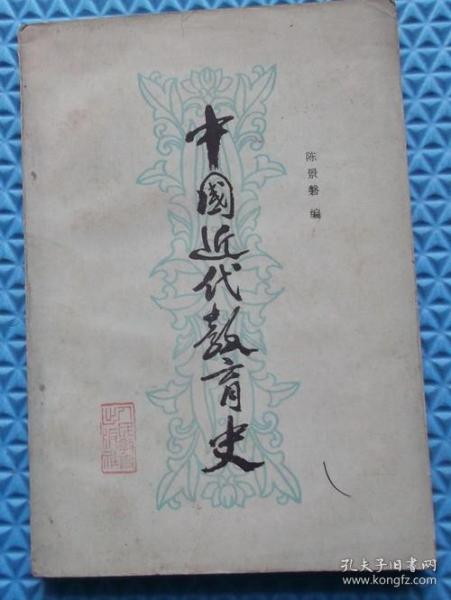 中國近代教育史
陈景磐 编
人民教育
出版社
孔夫子旧书网
www.kongfz.com